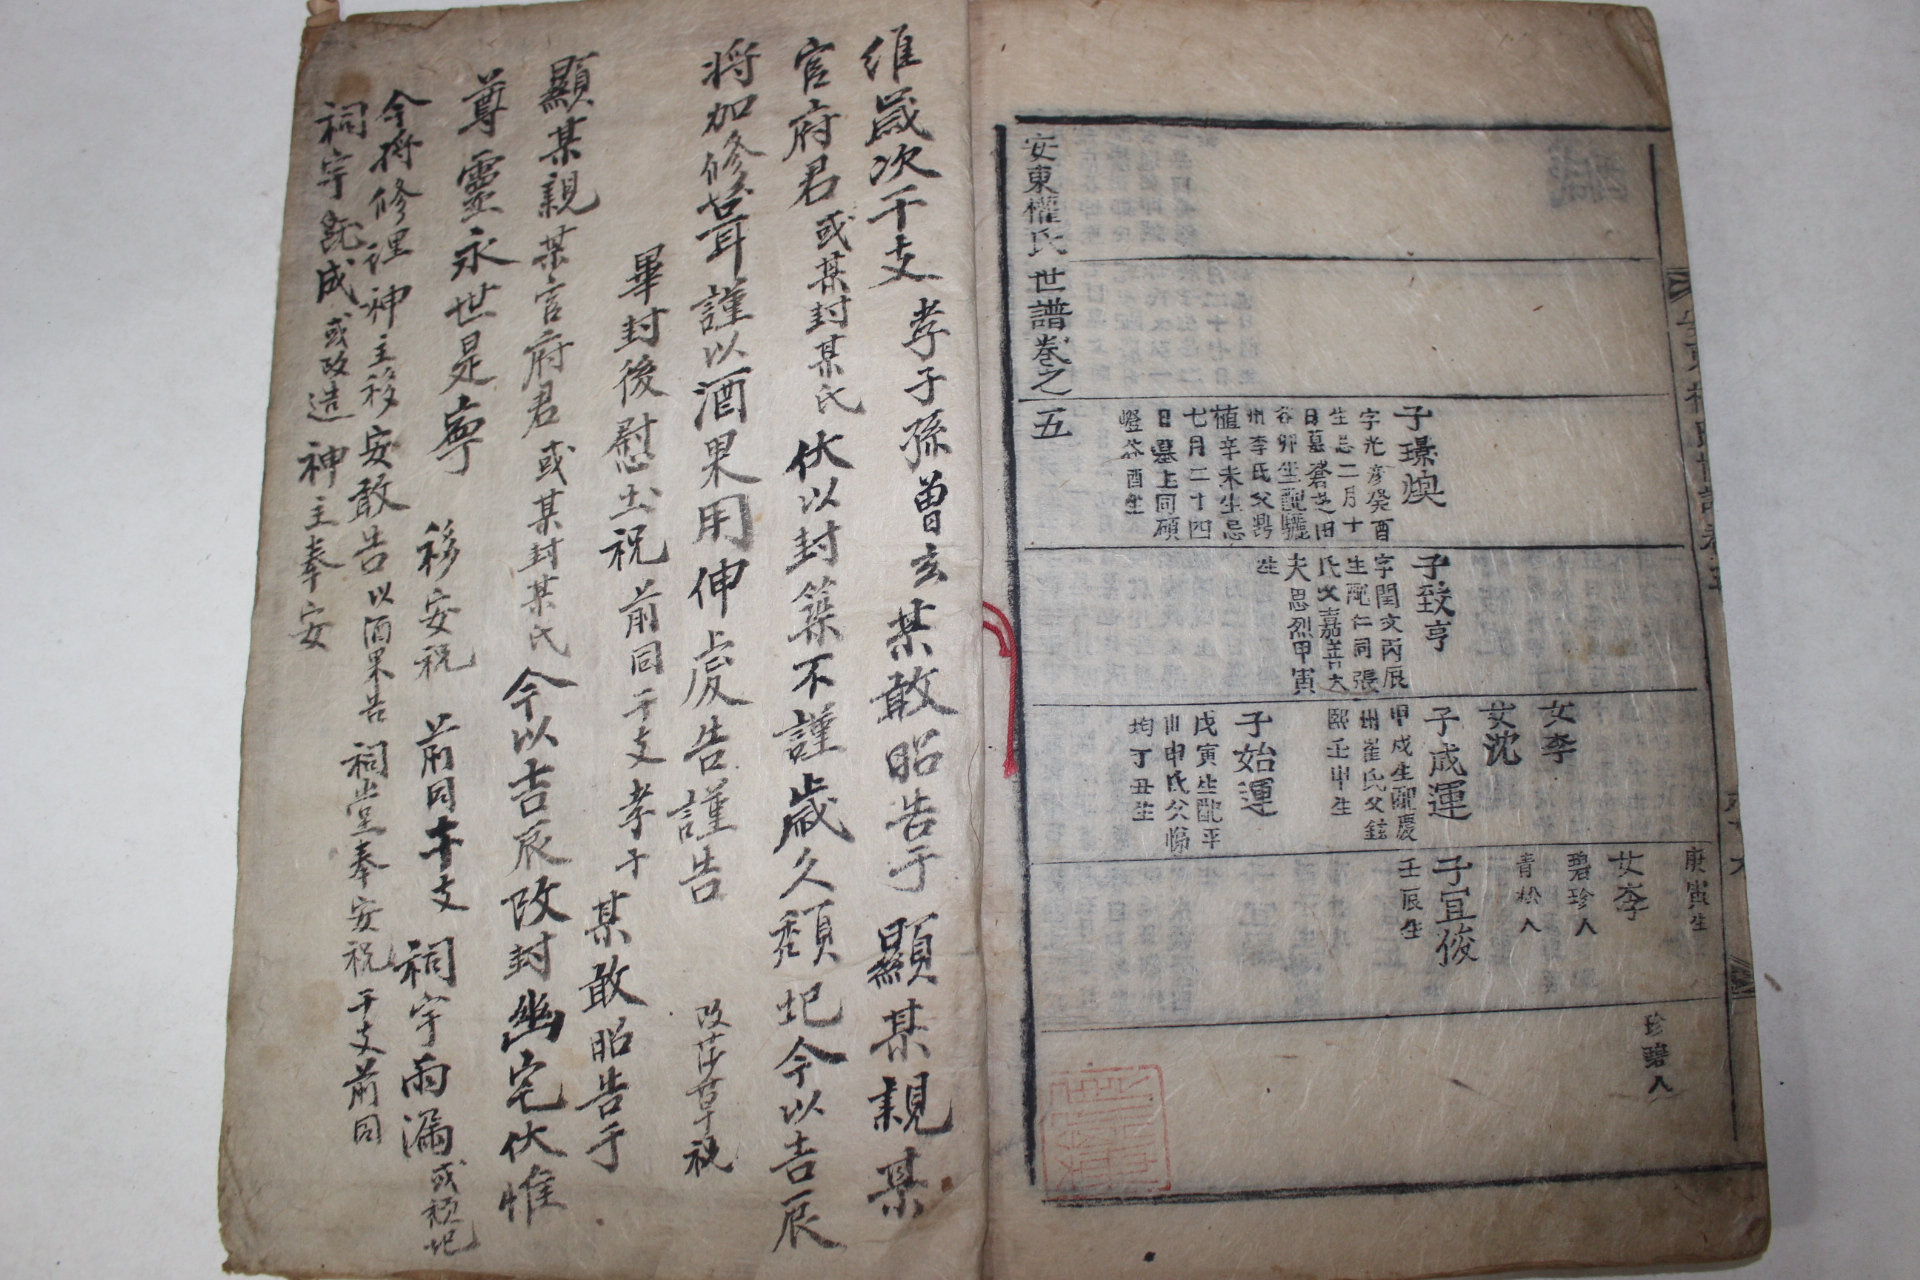 庚寅生
珍碧人
女李
碧珍人
青松人
子宜俊
壬辰生
女李
女沈
子成運
甲戌生配慶
州崔氏父鉉
熙壬申生
子始運
戊寅生配平
山申氏父
均丁丑生
子致亨
字閏文丙辰
生配仁同張
氏父嘉善大
夫思烈甲寅
生
子璟煥
字光彦癸酉
生忌二月十
日墓蒼芝田
谷卯坐配驪
州李氏父鼎
植辛未生忌
七月二十四
日墓上同碩
嶝谷酉坐
安東權氏世譜卷之五
維歲次干支 孝子孫曾玄某敢昭告于 顯某親某
官府君或某封某氏 伏以封築不謹歲久頹圮今以吉辰
將加修葺謹以酒果用伸虔告謹告 改莎草祝
畢封後慰土祝 前同干支孝子 某敢昭告于
顯某親某官府君或某封某氏 今以吉辰改封幽宅伏惟
尊靈永世是寧 移安祝 前同干支 祠宇雨漏或頹圮
今將修理神主移安敢告以酒果告 祠堂奉安祝 干支前同
祠宇旣成或改造 神主奉安